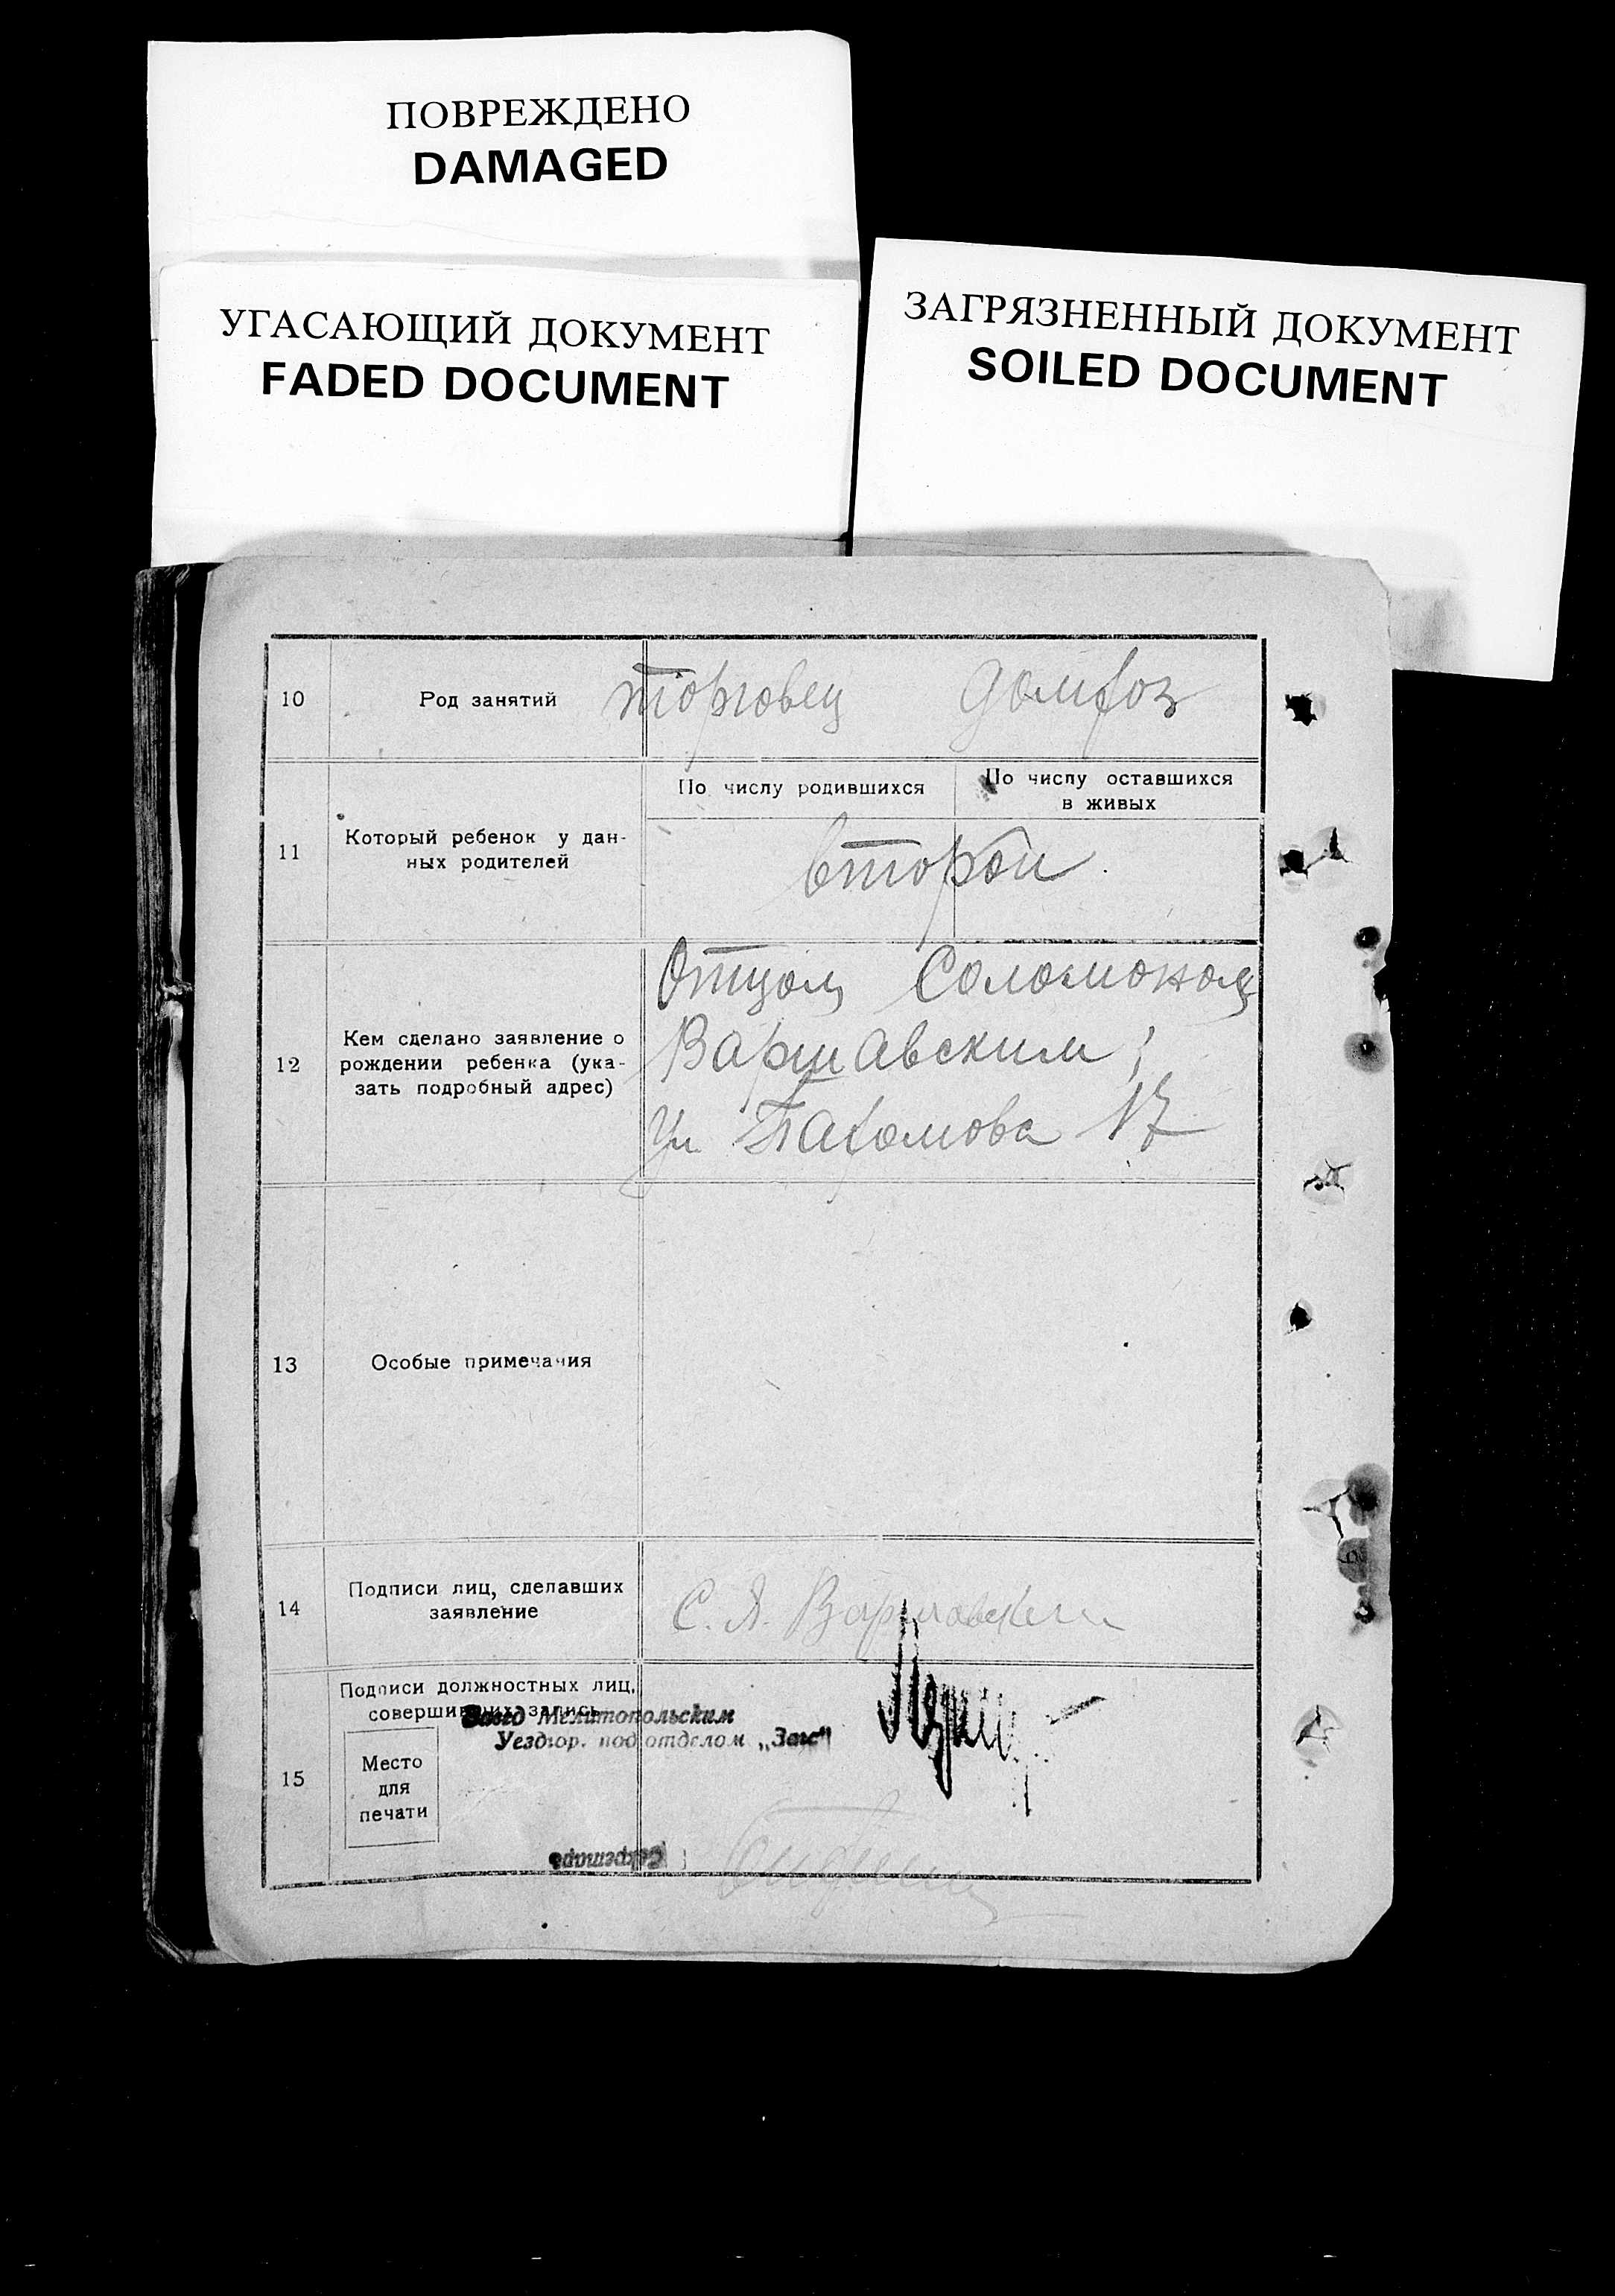 ПОВРЕЖДЕНО
DAMAGED
УГАСАЮЩИЙ ДОКУМЕНТ
FADED DOCUMENT
ЗАГРЯЗНЕННЫЙ ДОКУМЕНТ
SOILED DOCUMENT
10 Род занятий торговец домхоз
По числу родившихся
По числу оставшихся
в живых
11
Который ребенок у дан-
ных родителей
второй
12
Кем сделано заявление о
рождении ребенка (ука-
зать подробный адрес)
Отцом Соломоном
Варшавским;
Ул Пахомова 17
13 Особые примечания
14
Подписи лиц, сделавших
заявление
С. Я. Варшавский
15
Подписи должностных лиц,
совершивших запись
Завед Мелитопольским
Уездгор. подотделом „Загс"
Место
для
печати
Секретарь